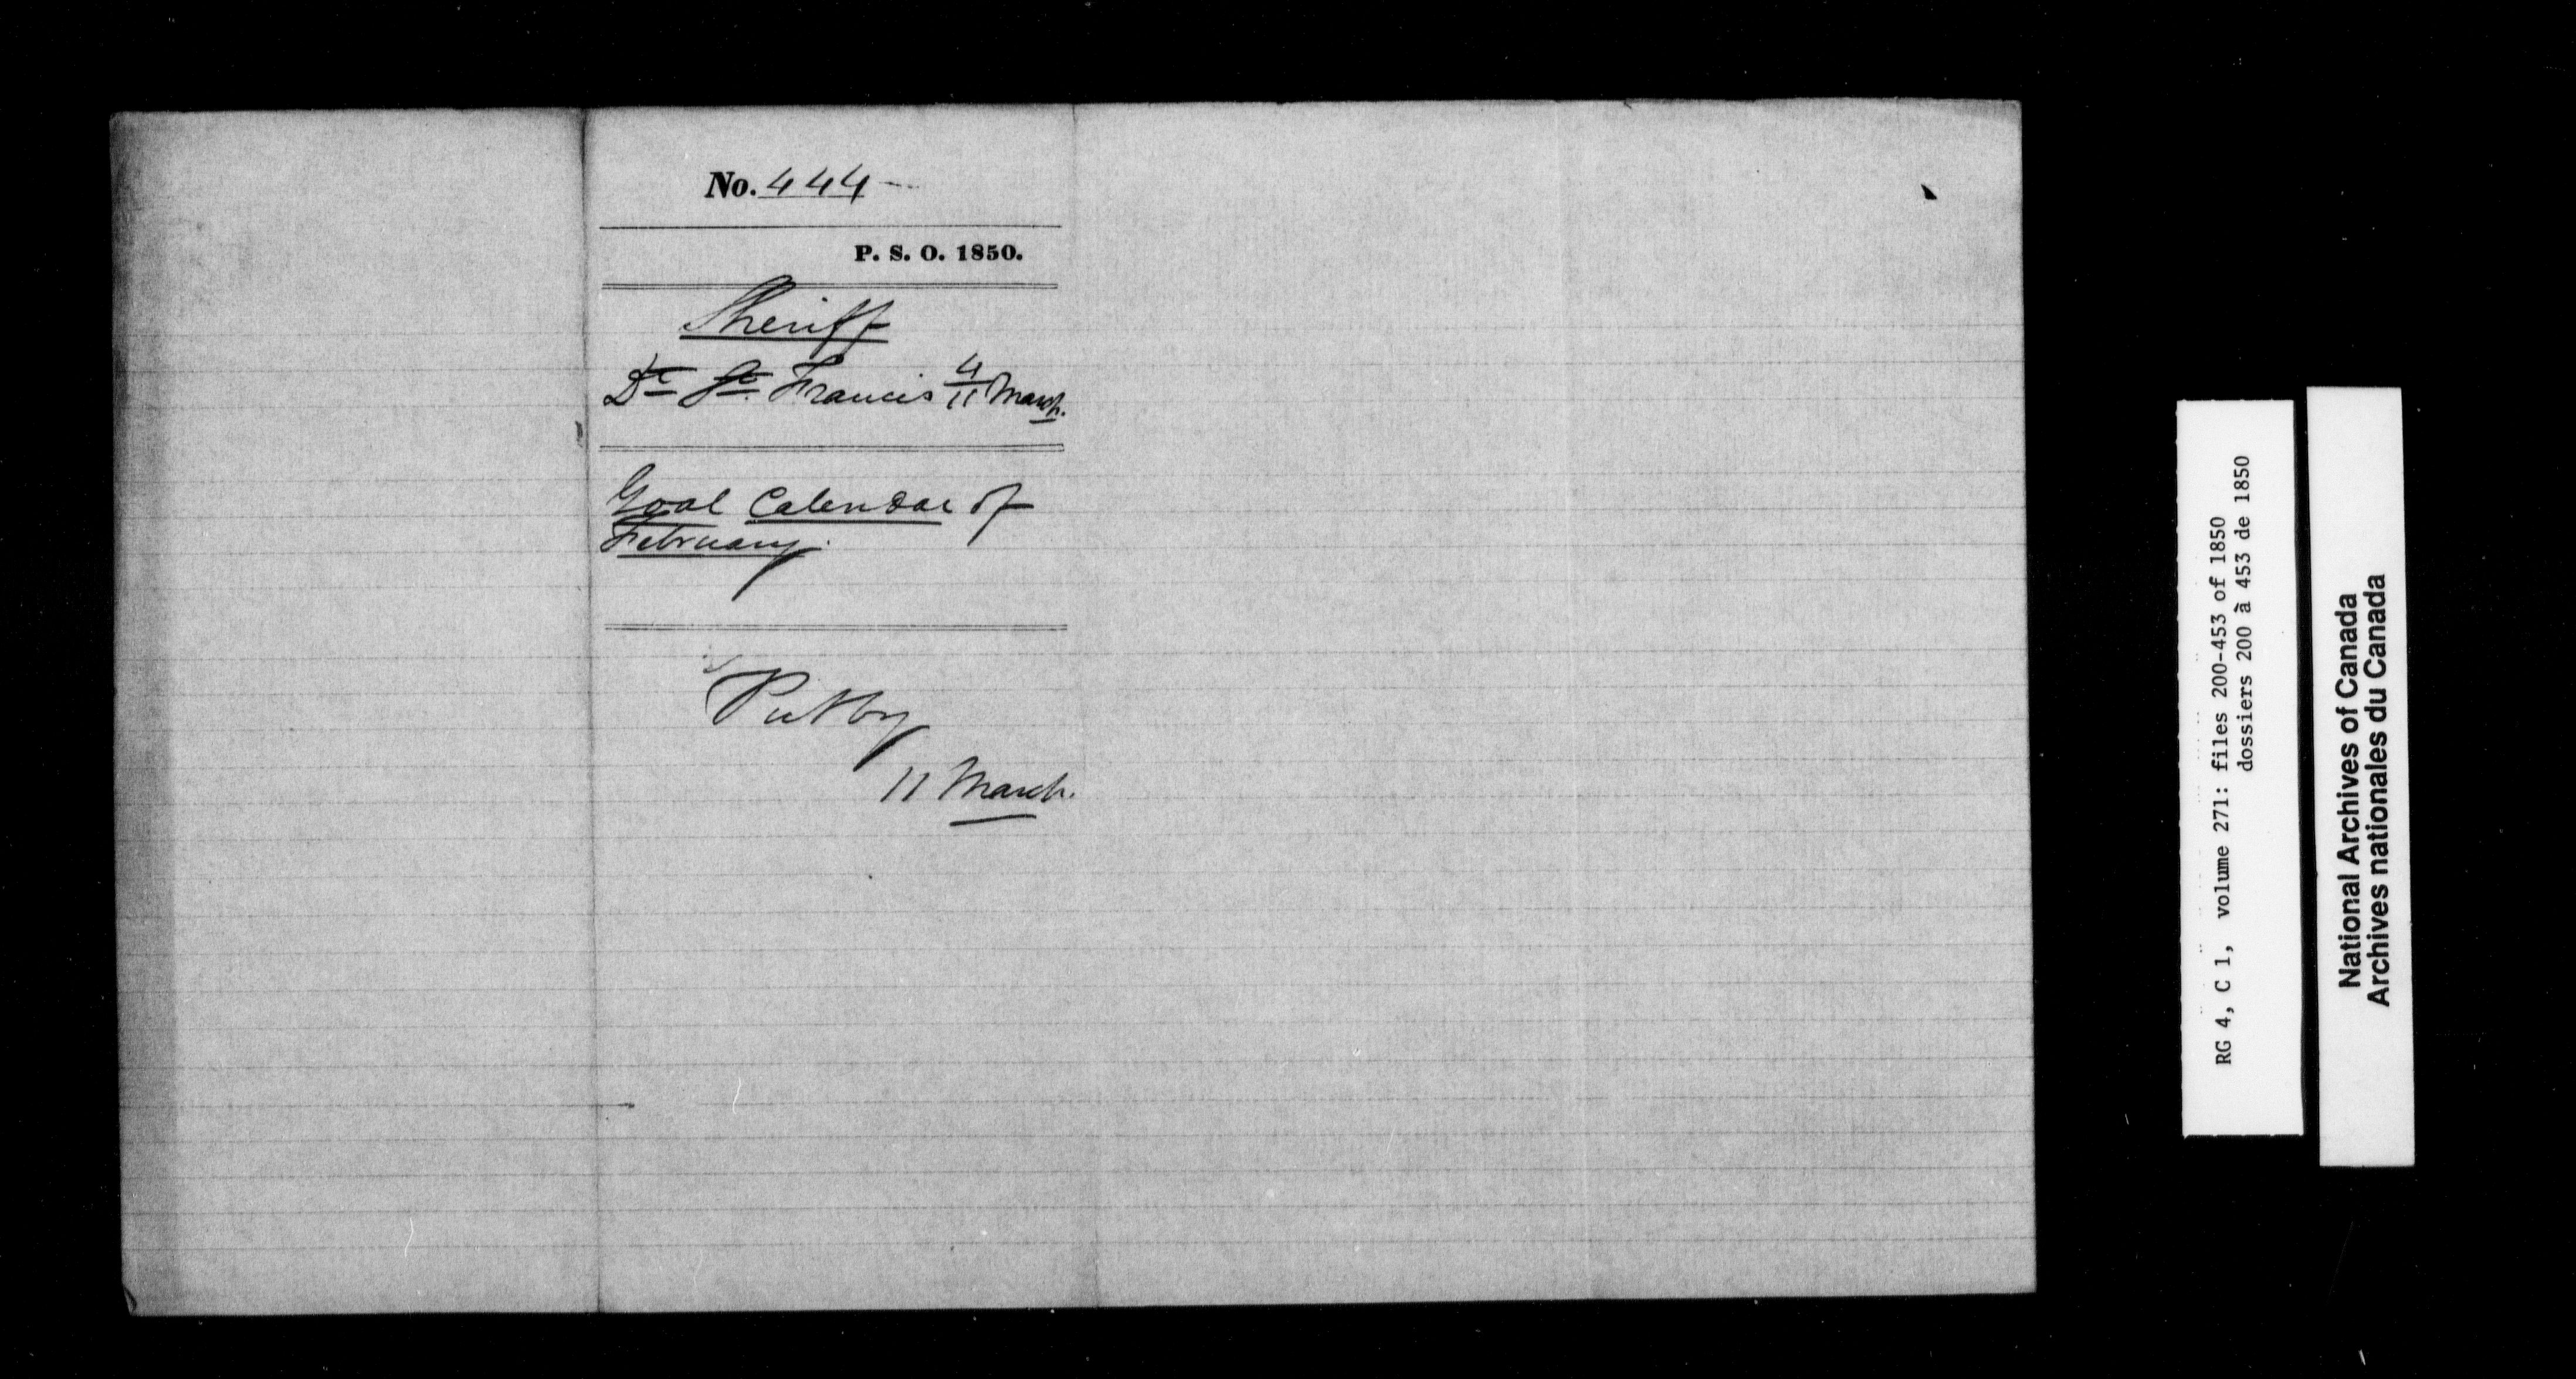 No. 444
P. S. O. 1850.
Sheriff
Dt St. Francis 4/11 March.
Goal Calendar of
February.
Put by
11 March.
RG 4, C 1, volume 271: files 200-453 of 1850
dossiers 200 à 453 de 1850
National Archives of Canada
Archives nationales du Canada